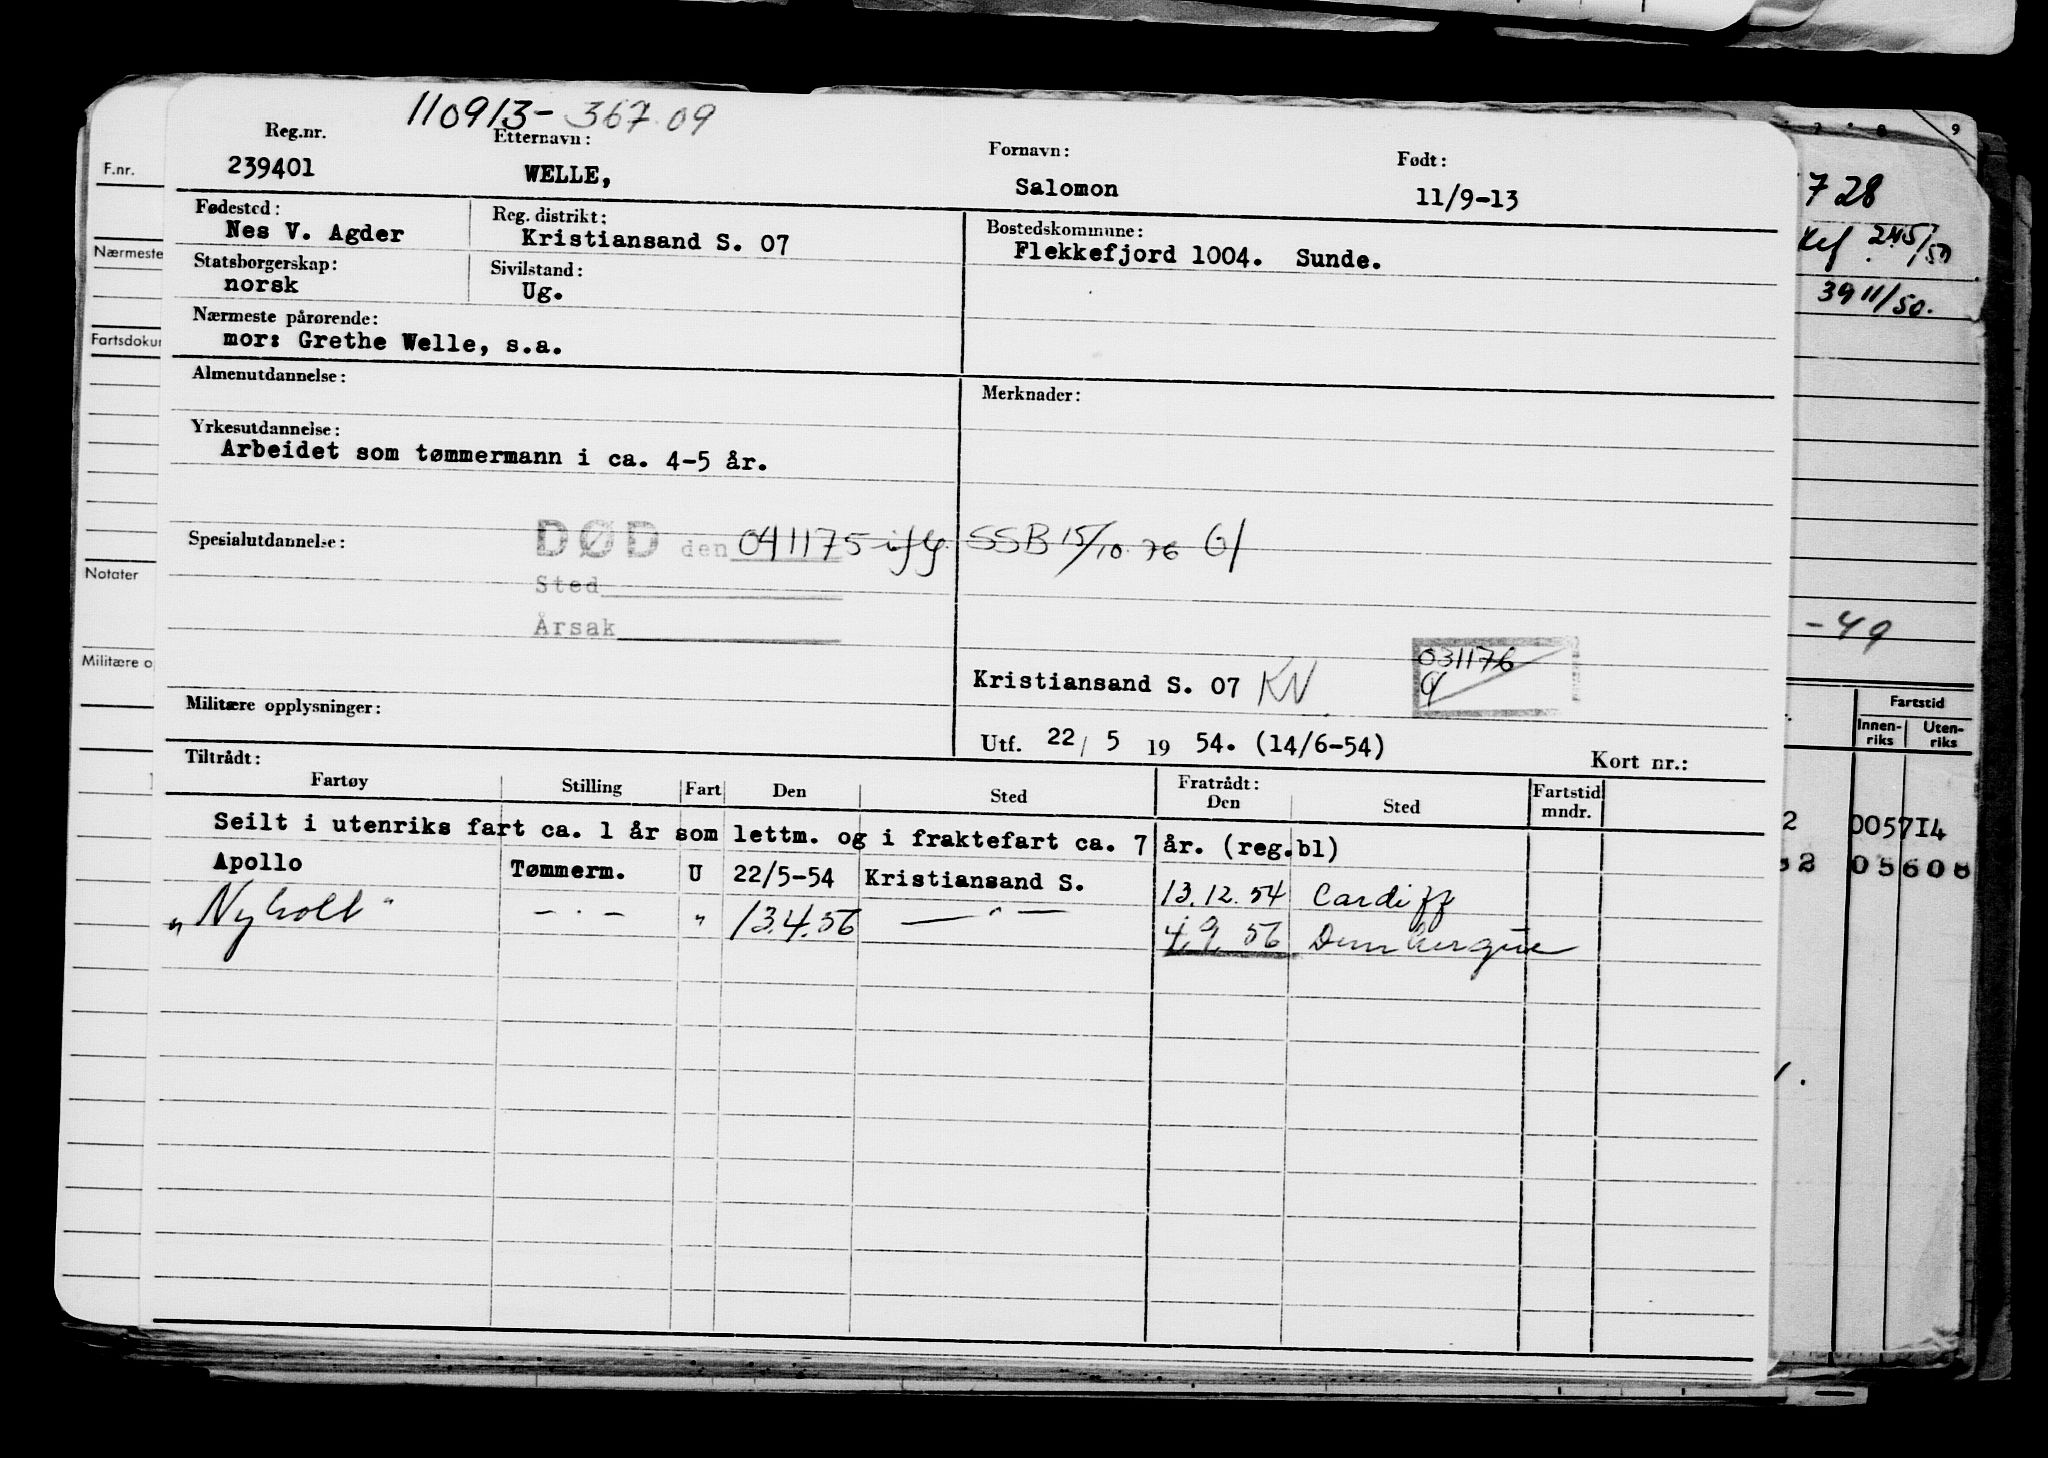 110913-36709
Reg.nr. Etternavn: Fornavn: Født:
239401 WELLE, Salomon 11/9-13
Fødested: Reg. distrikt: Bostedskommune:
Nes V. Agder Kristiansand S. 07 Flekkefjord 1004. Sunde.
Statsborgerskap: Sivilstand:
norsk Ug.
Nærmeste pårørende:
mor: Grethe Welle, s.a.
Almenutdannelse: Merknader:
Yrkesutdannelse:
Arbeidet som tømmermann i ca. 4-5 år.
Spesialutdannelse: DØD den 041175 ifg. SSB 15/10.76
Sted
Årsak
031176
Kristiansand S. 07 KN
Militære opplysninger:
Utf. 22/5 1954. (14/6-54) Kort nr.:
Tiltrådt: Fratrådt:
Fartøy Stilling Fart Den Sted Den Sted Fartstid mndr.
Seilt i utenriks fart ca. 1 år som lettm. og i fraktefart ca. 7 år. (reg.bl)
Apollo Tømmerm. U 22/5-54 Kristiansand S. 13.12.54 Cardiff
"Nyholt" — . — " 13.4.56 — " — 4.9.56 Dunkerque
F.nr.
Nærmeste
Fartsdokum
Notater
Militære o
7 8 9
728
245/50
3911/50.
-49
Fartstid
Innen-riks Uten-riks
2 005714
32 05608